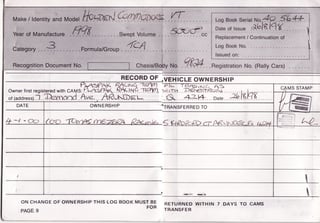 Make / Identity and Model HOLDEN COMMODORE VT
Log Book Serial No. 40 5644
Year of Manufacture 1998 Swept Volume 5000 cc
Date of Issue 26/8/98
Replacement / Continuation of
Category 3 Formula/Group TCA
Log Book No.
Issued on
Recognition Document No. Chassis/Body No.
Registration No. (Rally Cars)
RECORD OF VEHICLE OWNERSHIP
CAMS STAMP
Owner first registered with CAMS RACING TEAM TRADING AS
RACING TEAM WITH
of (address) 7 Demand Ave, ARUNDEL Q 4214 Date 26/8/98
DATE OWNERSHIP *TRANSFERRED TO
4-1-00 TOMAS MEZERA RACING 5 CT ARUNDEL
ON CHANGE OF OWNERSHIP THIS LOG BOOK MUST BE RETURNED WITHIN 7 DAYS TO CAMS
FOR TRANSFER
PAGE 9